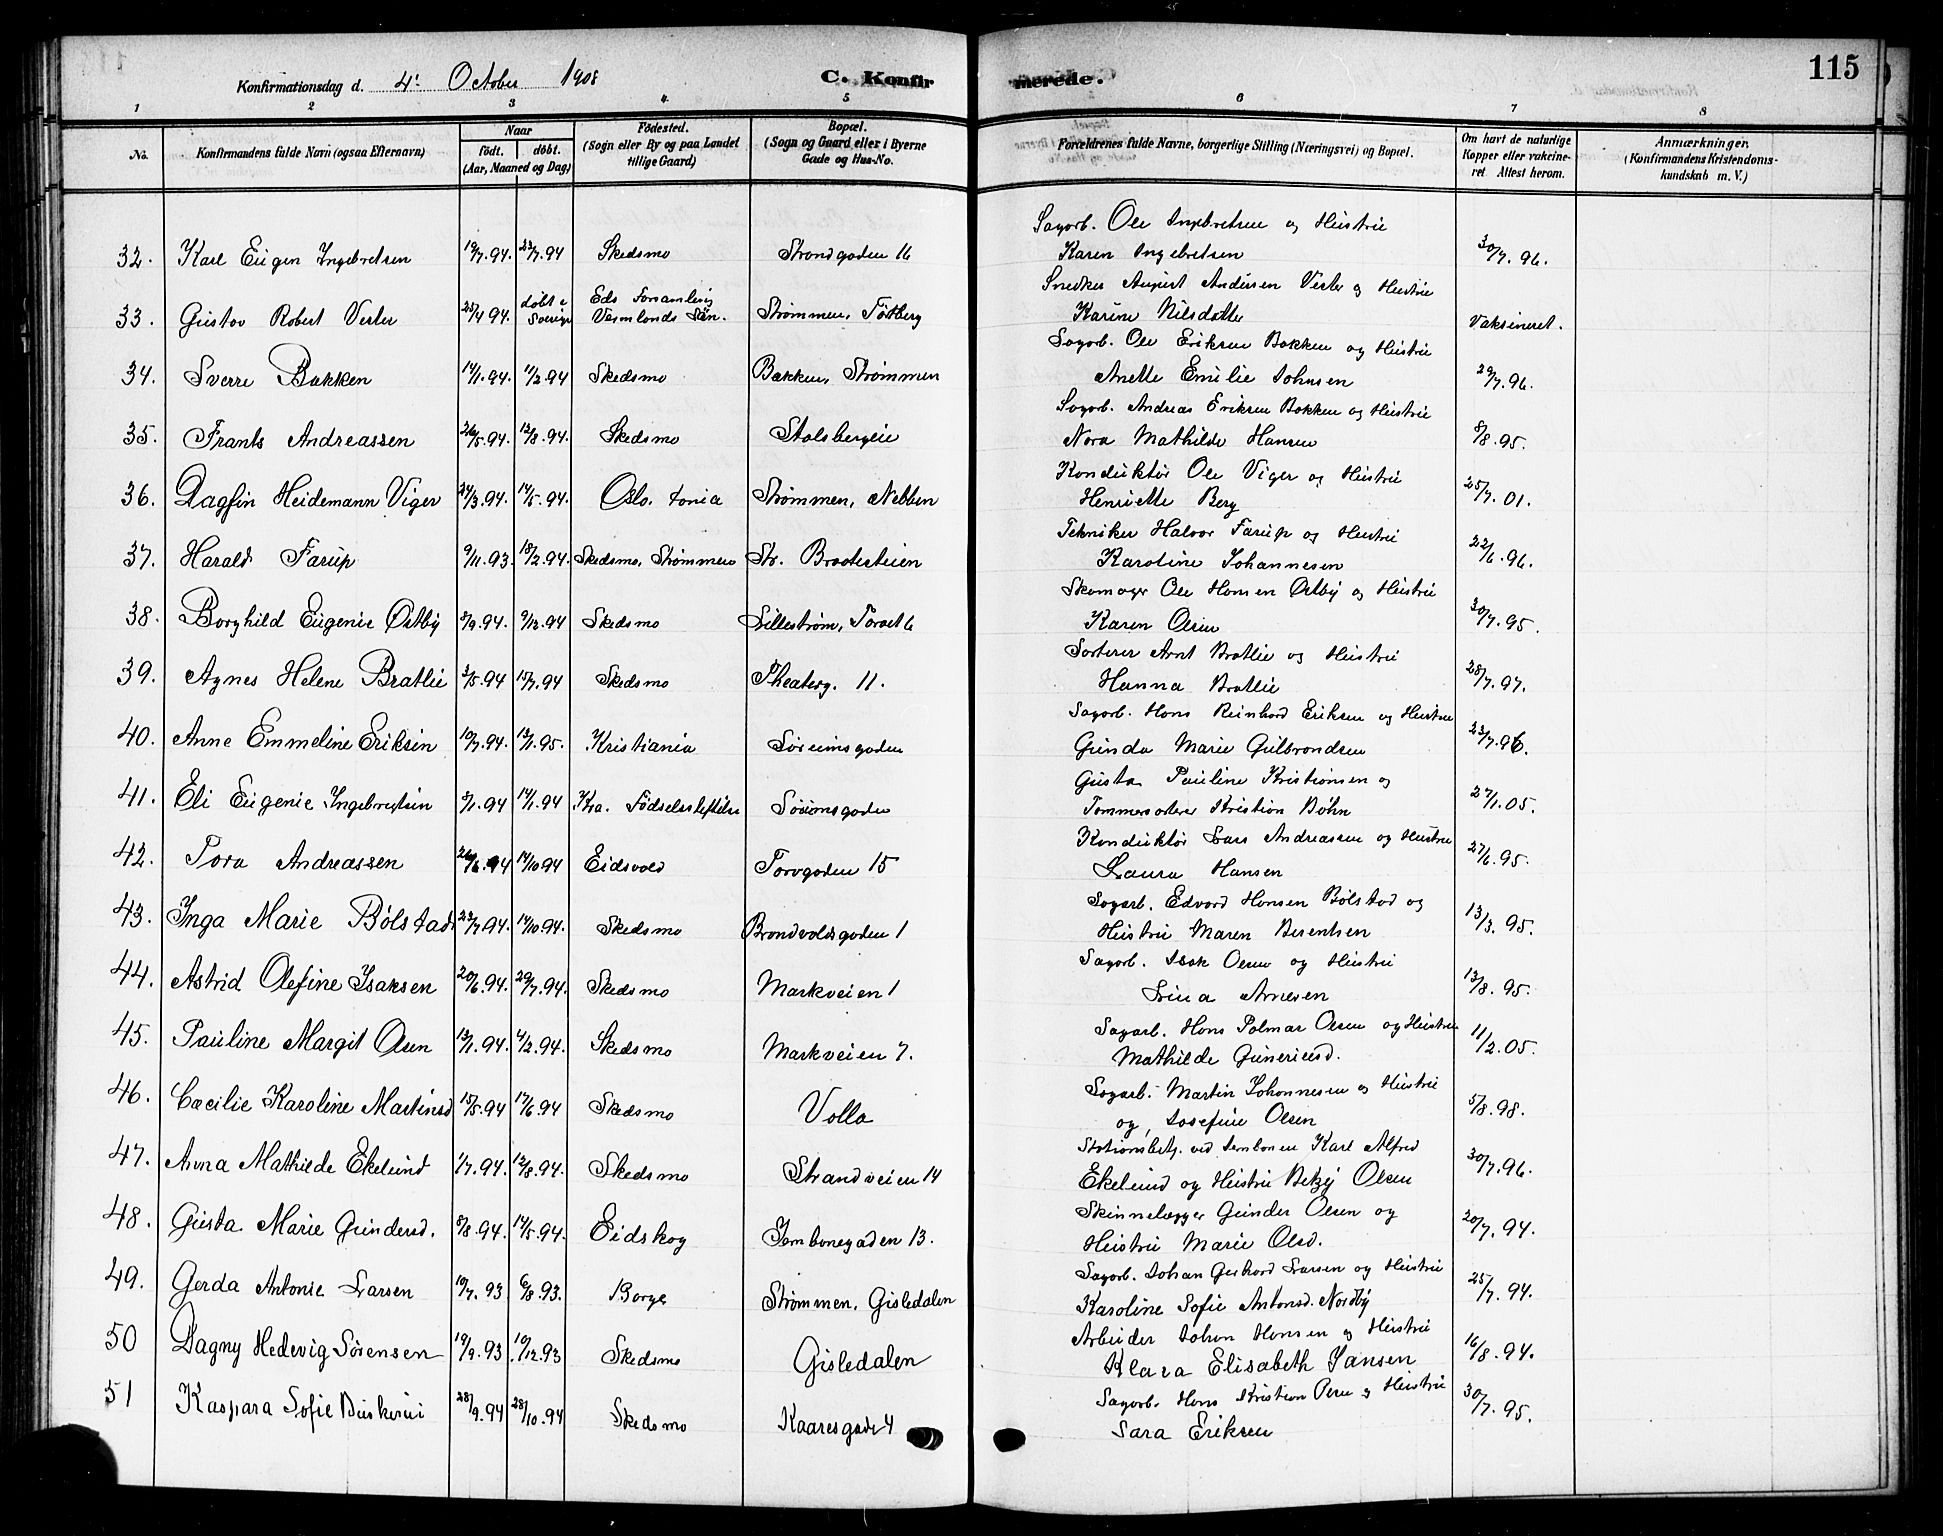 Konfirmationsdag d. 4' October 1908 C. Konfirmerede. 115
1 2 3 4 5 6 7 8
No. Konfirmandens fulde Navn (ogsaa Efternavn) Naar født. døbt. (Aar, Maaned og Dag) Fødested. (Sogn eller By og paa Landet tillige Gaard) Bopæl. (Sogn og Gaard eller i Byerne Gade og Hus-No. Forældrenes fulde Navne, borgerlige Stilling (Næringsvei) og Bopæl. Om havt de naturlige Kopper eller vakcineret Attest herom. Anmærkninger. (Konfirmandens Kristendomskundskab m. V.)
32. Karl Eugen Ingebretsen 19/7.94. 23/7.94 Skedsmo Strandgaden 16 Sagarb. Ole Ingebretsen og Hustru Karen Ingebretsen 30/7.96.
33. Gustav Robert Verler 25/4 94. døbt i Sverige Eds Forsamling Vermlands Län. Strømmen, Tøtberg Snedker August Andersen Verler og Hustru Karine Nilsdatter Vaksineret.
34. Sverre Bakken 14/1.94. 11/2.94 Skedsmo Bakken, Strømmen Sagarb. Ole Eriksen Bakken og Hustru Anette Emilie Johnsen 29/7.96.
35. Frants Andreassen 26/5.94. 12/8.94. Skedsmo Stalsbergeie Sagarb. Andreas Eriksen Bakken og Hustru Nora Mathilde Hansen 8/8.95.
36. Dagfin Heidemann Viger 24/3.94. 14/5.94. Oslo. Strømmen, Nebben Konduktør Ole Viger og Hustru Henriette Berg 25/7.01.
37. Harald Farup 9/11.93. 18/2.94. Skedsmo, Strømmen Str. Braatesteien Tekniker Halvor Farup og Hustru Karoline Johannesen 22/6.96.
38. Borghild Eugenie Østby 8/9.94. 9/12.94 Skedsmo Lillestrøm, Torvet 6 Skomager Ole Hansen Østby og Hustru Karen Olsen 30/7.95.
39. Agnes Helene Bratlie 3/5.94 15/7.94 Skedsmo Theaterg. 11. Sorterer Arnt Bratlie og Hustru Hanna Bratlie 28/7.97.
40. Anne Emmeline Eriksen 10/7.94. 13/1.95. Kristiania Sørumsgaden Sagarb. Hans Reinhard Eriksen og Hustru Gunda Marie Gulbrandsen 23/7.96.
41. Eli Eugenie Ingebrigtsen 5/1.94 14/1.94 Kra. Fødselsstiftelse Sørumsgaden Gusta Pauline Kristiansen og Tømmersorterer Kristian Bøhn 27/1.05.
42. Tora Andreassen 26/6.94 14/10.94 Eidsvold Torvgaden 15 Konduktør Lars Andreassen og Hustru Laura Hansen 27/6.95.
43. Inga Marie Bølstad 23/7.94. 14/10.94. Skedsmo Brandvoldsgaden 1 Sagarb. Edvard Hansen Bølstad og Hustru Maren Berentsen 13/3.95.
44. Astrid Olefine Isaksen 20/6.94. 29/7.94. Skedsmo Markveien 1 Sagarb. Isak Olsen og Hustru Lina Arnesen 13/8.95.
45. Pauline Margit Olsen 13/1.94. 4/2.94. Skedsmo Markveien 7. Sagarb. Hans Palmar Olsen og Hustru Mathilde Guneriusd. 11/2.05.
46. Cæcilie Karoline Martinsd 15/5.94 17/6.94 Skedsmo Volla Sagarb. Martin Johannesen og Hustru og Josefine Olsen 5/8.98.
47. Anna Mathilde Ekelund 1/7.94. 12/8.94. Skedsmo Strandveien 14 Stationsbetj. ved Jernbanen Karl Alfred Ekelund og Hustru Betzy Olsen 30/7.96.
48. Gusta Marie Gundersd. 8/3.94. 14/5.94. Eidskog Jernbanegaden 13. Skinnelægger Gunder Olsen og Hustru Marie Olsd. 20/7.94.
49. Gerda Antonie Larsen 10/7.93 6/8.93. Borge Strømmen, Gisledalen Sagarb. Johan Gerhard Larsen og Hustru Karoline Sofie Antonsd. Nordby 25/7.94.
50 Dagny Hedevig Sørensen 19/9.93 10/12.93 Skedsmo Gisledalen Arbeider Johan Hansen og Hustru Klara Elisabeth Jansen 16/8.94.
51 Kaspara Sofie Buskerud 28/9.94 28/10.94 Skedsmo Kaaresgade 4 Sagarb. Hans Kristian og Hustru Sara Eriksen 30/7.95.